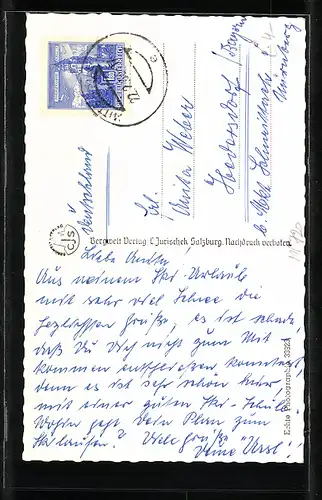 Deutschland
Frl.
Anita Weber
Hedersdorf/Bayern
b. Nürnberg
CJS
Bergwelt Verlag C. Jurischek, Salzburg. Nachdruck verboten.
Liebe Anita!
Aus meinem Ski-Urlaub
mit sehr viel Schnee die
herzlichsten Grüße, es ist schade,
daß Du Dich nicht zum Mit
kommen entschließen konntest,
denn es ist sehr schön hier
mit einer guten Ski-Schule.
Wohin geht Dein Plan zum
Skilaufen? Viele Grüße
Deine "Ursl"!
Echte Photographie 3392